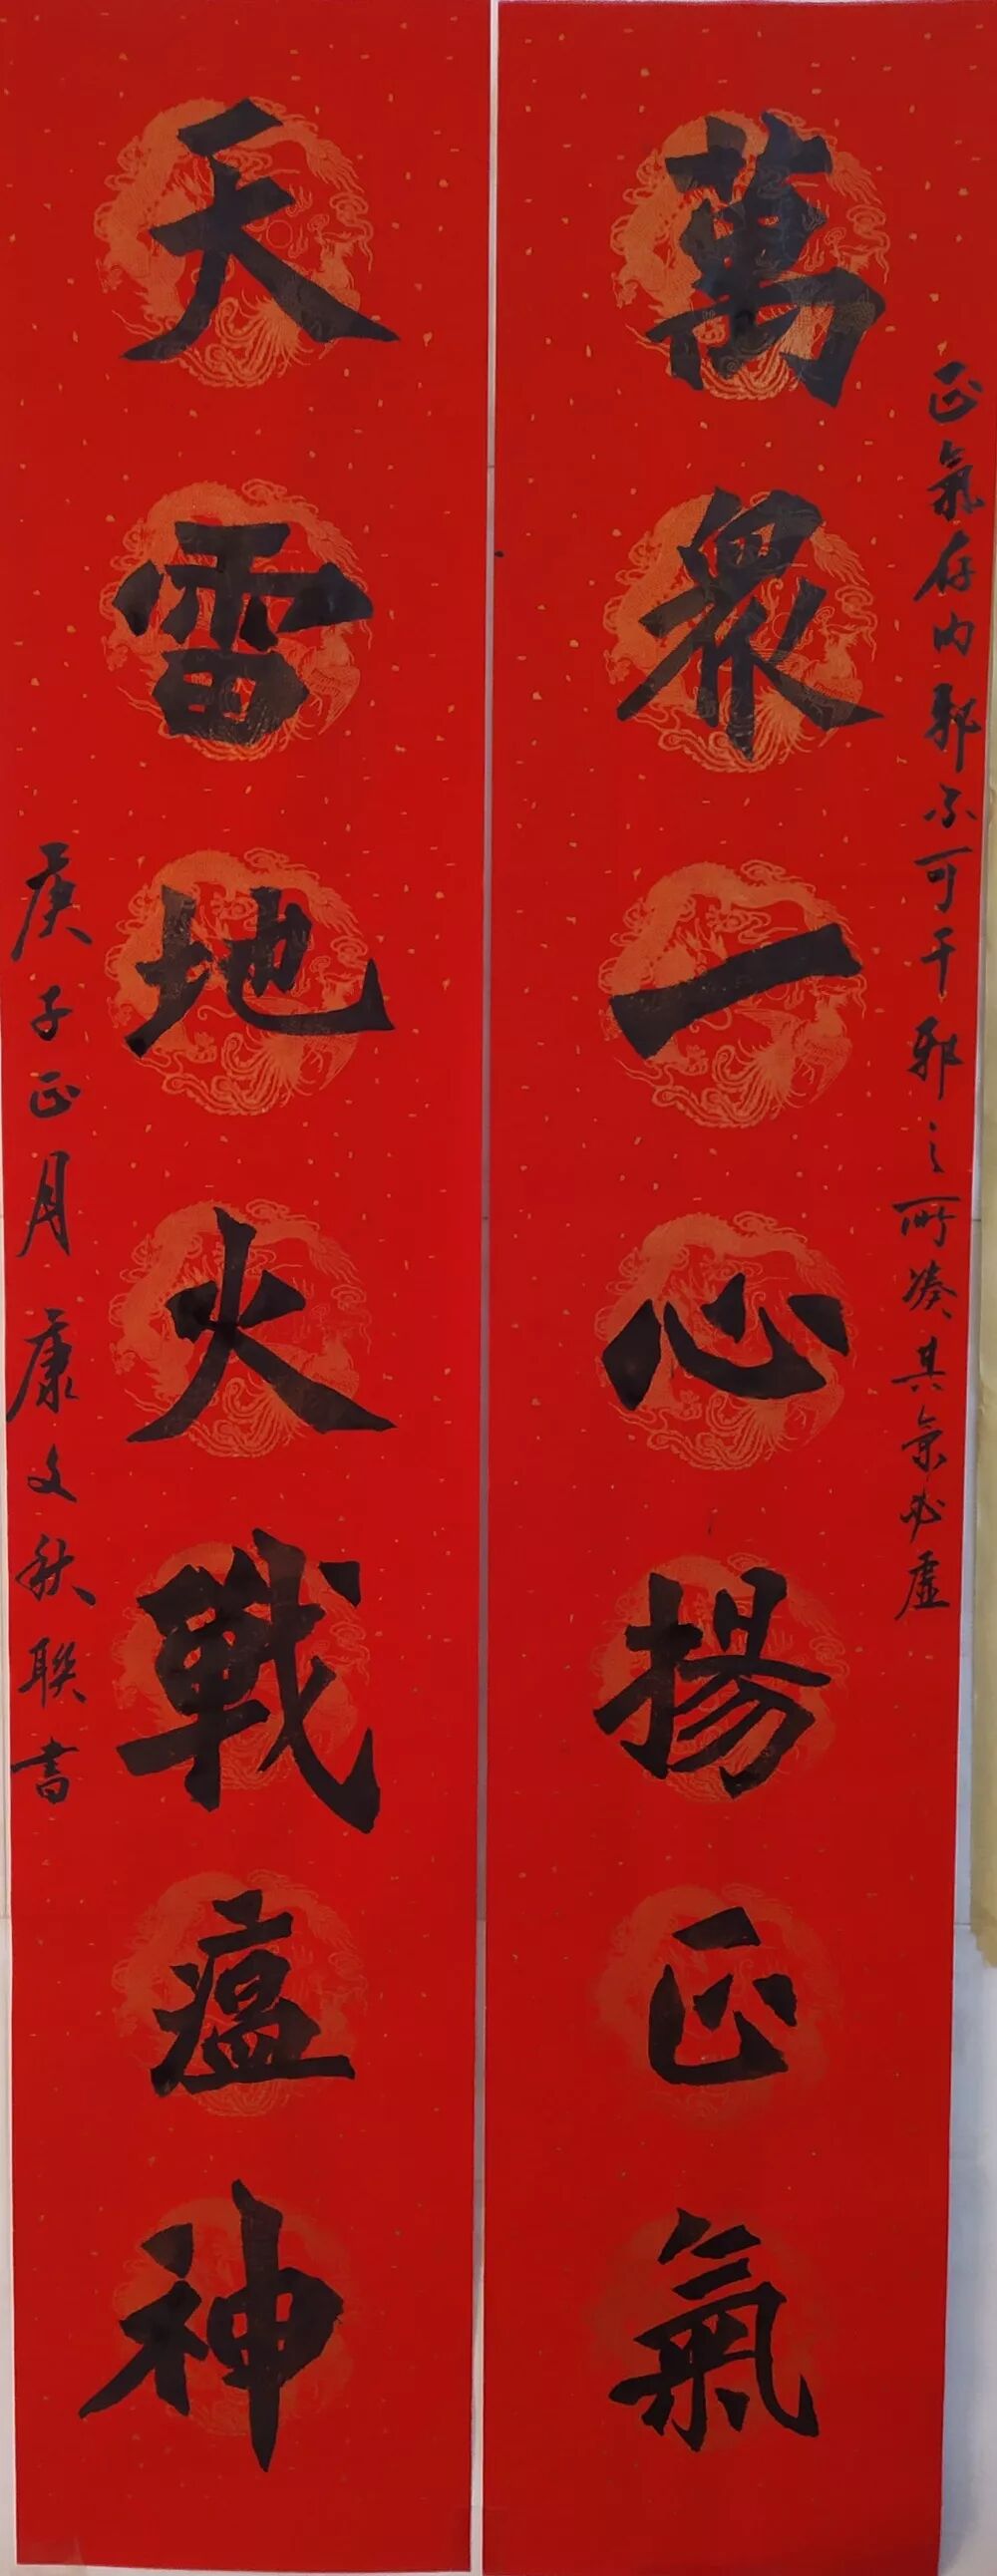 正氣存内邪不可干邪之所湊其氣必虛
萬衆一心揚正氣
天雷地火戰瘟神
庚子正月康文秋聯書